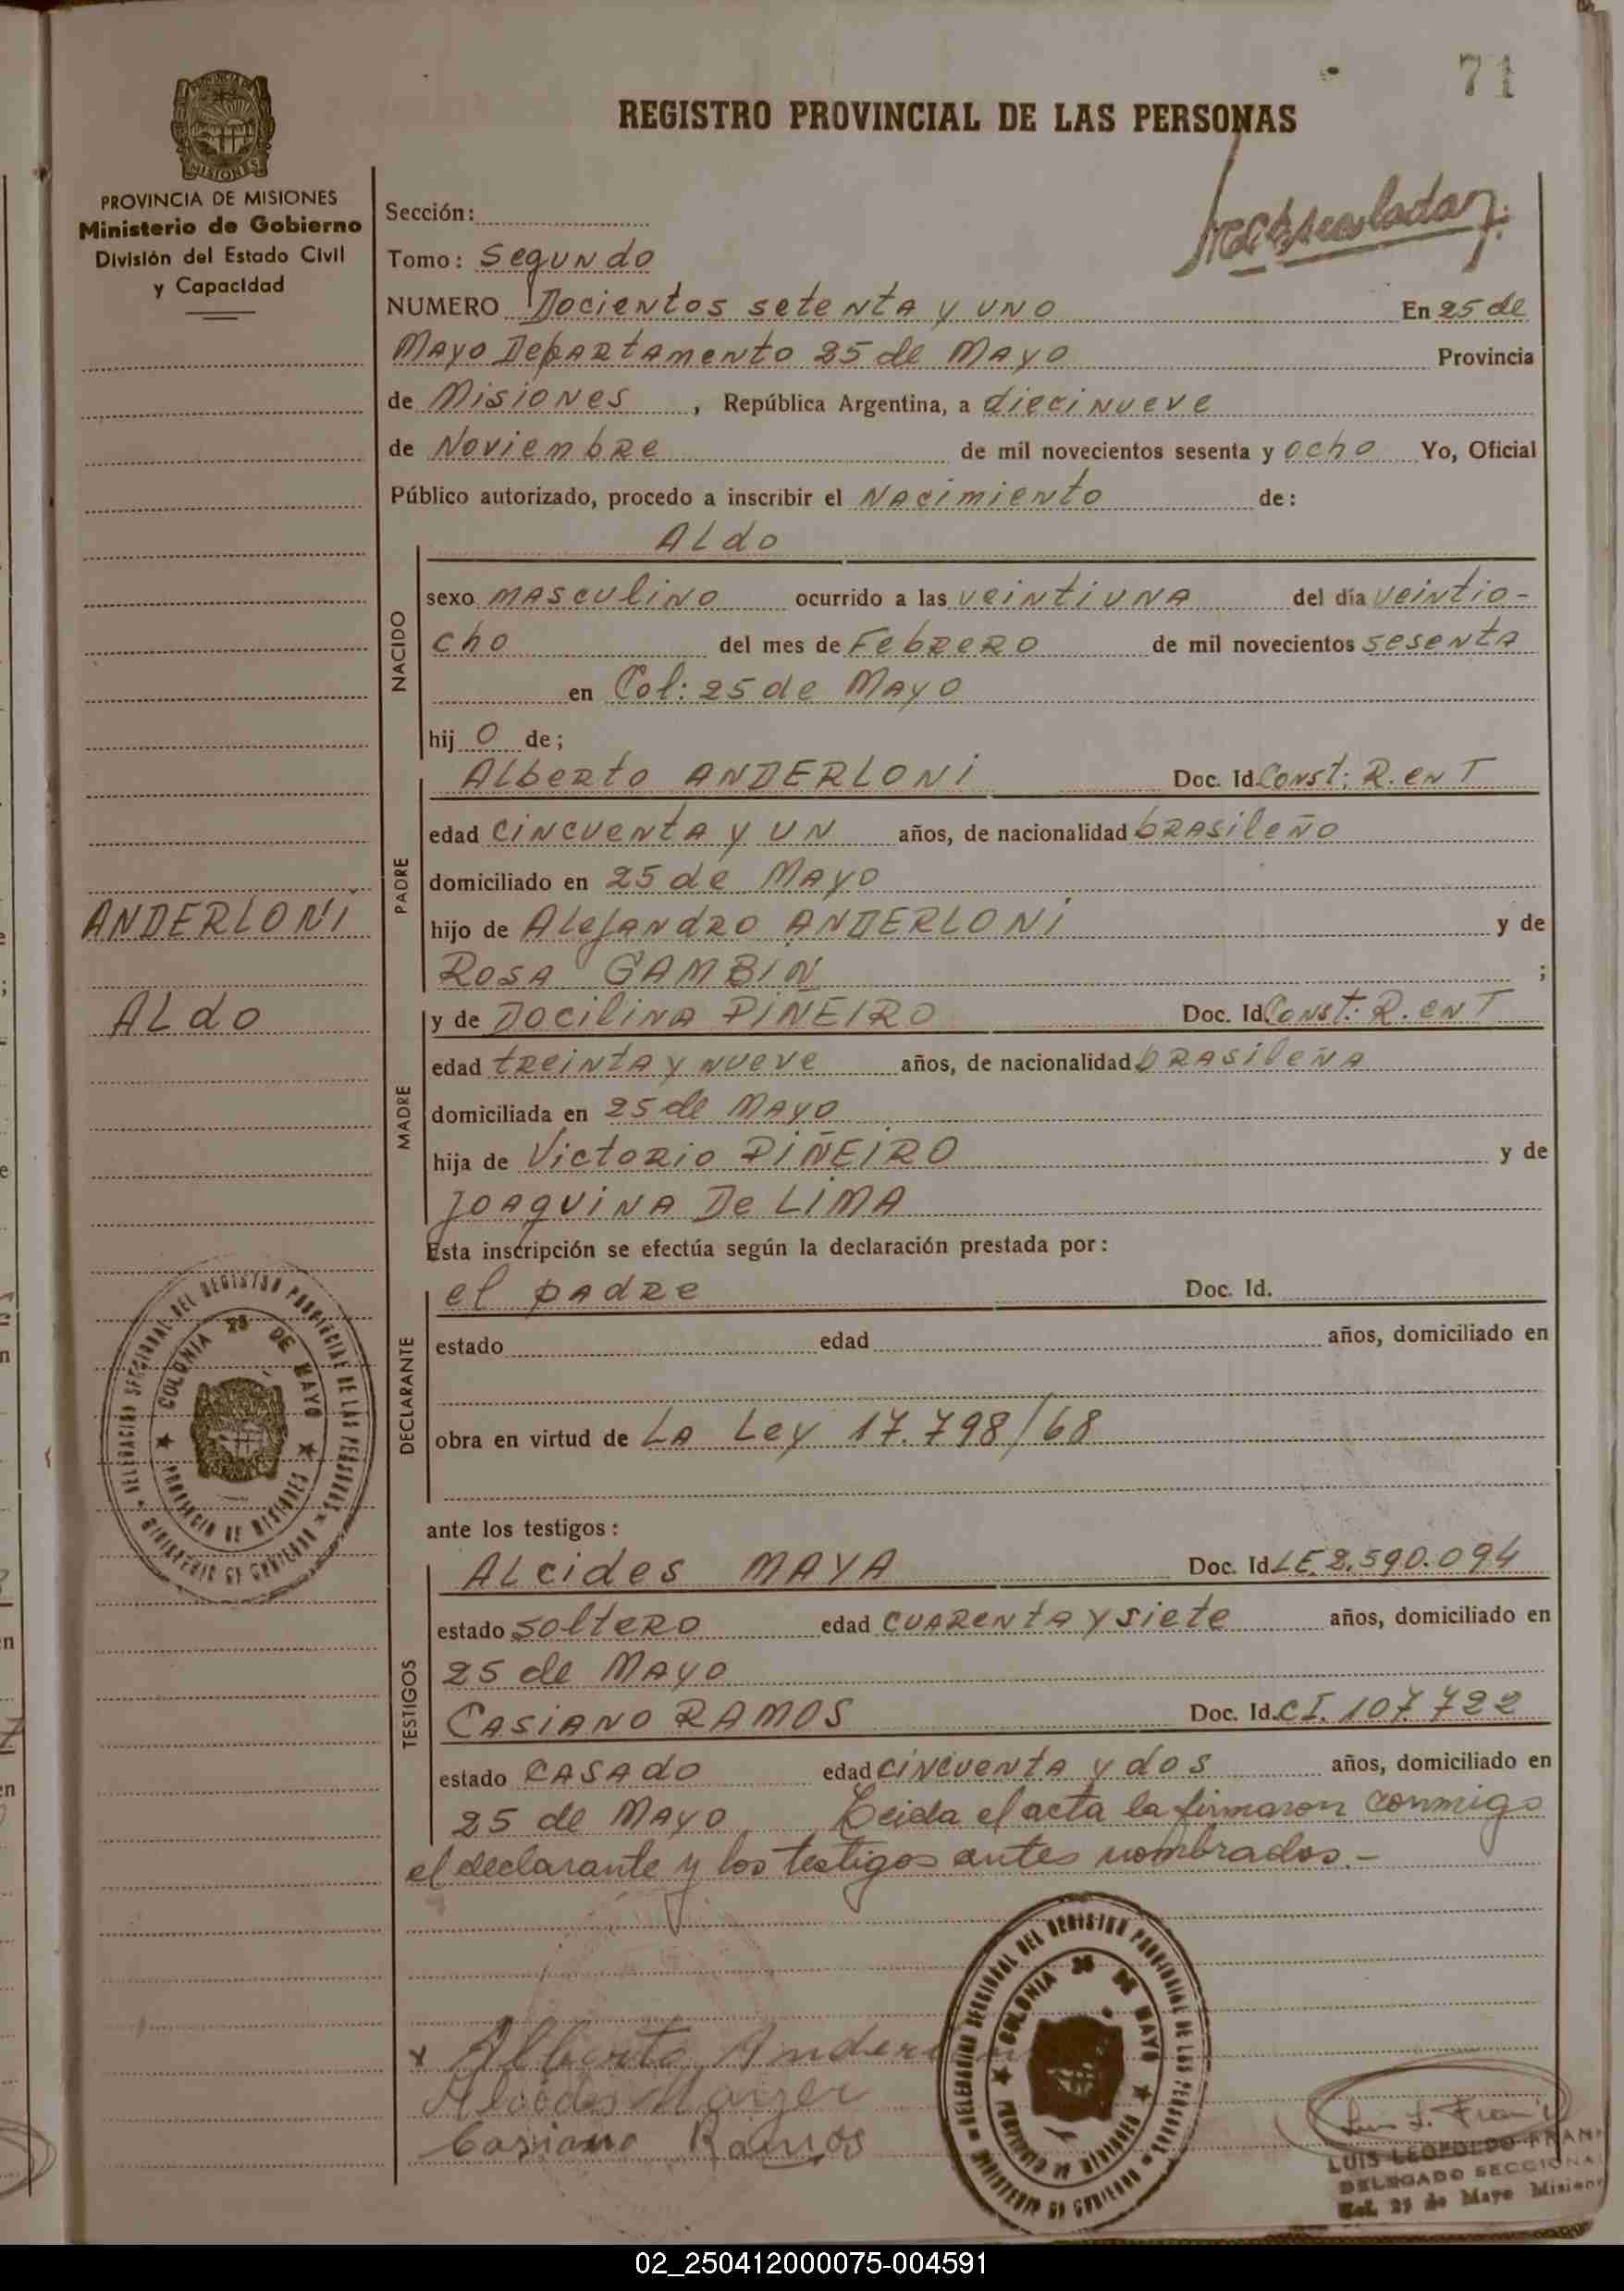 71
REGISTRO PROVINCIAL DE LAS PERSONAS
PROVINCIA DE MISIONES
MISIONES
PROVINCIA DE MISIONES
Ministerio de Gobierno
División del Estado Civil
y Capacidad
Sección:
Tomo: Segundo
NUMERO Docientos setenta y uno En 25 de
Mayo Departamento 25 de Mayo Provincia
de Misiones, República Argentina, a diecinueve
de Noviembre de mil novecientos sesenta y ocho Yo, Oficial
Público autorizado, procedo a inscribir el Nacimiento de:
NACIDO
ALdo
sexo masculino ocurrido a las veintiuna del día veintio-
cho del mes de Febrero de mil novecientos sesenta
en Col: 25 de Mayo
hijo de;
PADRE
Alberto ANDERLONI Doc. Id. Const: R. en T
edad cincuenta y un años, de nacionalidad brasileño
domiciliado en 25 de Mayo
hijo de Alejandro ANDERLONI y de
Rosa GAMBIN ;
ANDERLONI
ALdo
MADRE
y de Docilina PIÑEIRO Doc. Id. Const: R. en T
edad treinta y nueve años, de nacionalidad brasileña
domiciliada en 25 de Mayo
hija de Victorio PIÑEIRO y de
Joaquina De LIMA
Esta inscripción se efectúa según la declaración prestada por:
DECLARANTE
el padre Doc. Id.
estado edad años, domiciliado en
obra en virtud de La Ley 17.798/68
DELEGACIÓN SECCIONAL DEL REGISTRO PROVINCIAL DE LAS PERSONAS
MINISTERIO DE GOBIERNO
COLONIA 25 DE MAYO
PROVINCIA DE MISIONES
ante los testigos:
TESTIGOS
ALcides MAYA Doc. Id. LE. 2.590.094
estado soltero edad cuarenta y siete años, domiciliado en
25 de Mayo
Casiano RAMOS Doc. Id. CI. 107.722
estado casado edad cincuenta y dos años, domiciliado en
25 de Mayo Leida el acta la firmaron conmigo
el declarante y los testigos antes nombrados.-
DELEGACIÓN SECCIONAL DEL REGISTRO PROVINCIAL DE LAS PERSONAS
MINISTERIO DE GOBIERNO
COLONIA 25 DE MAYO
PROVINCIA DE MISIONES
x Alberto Ander
Casiano Ramos
LUIS LEOPOLDO FRAN
DELEGADO SECCIONAL
Col. 25 de Mayo Misiones
02_250412000075-004591